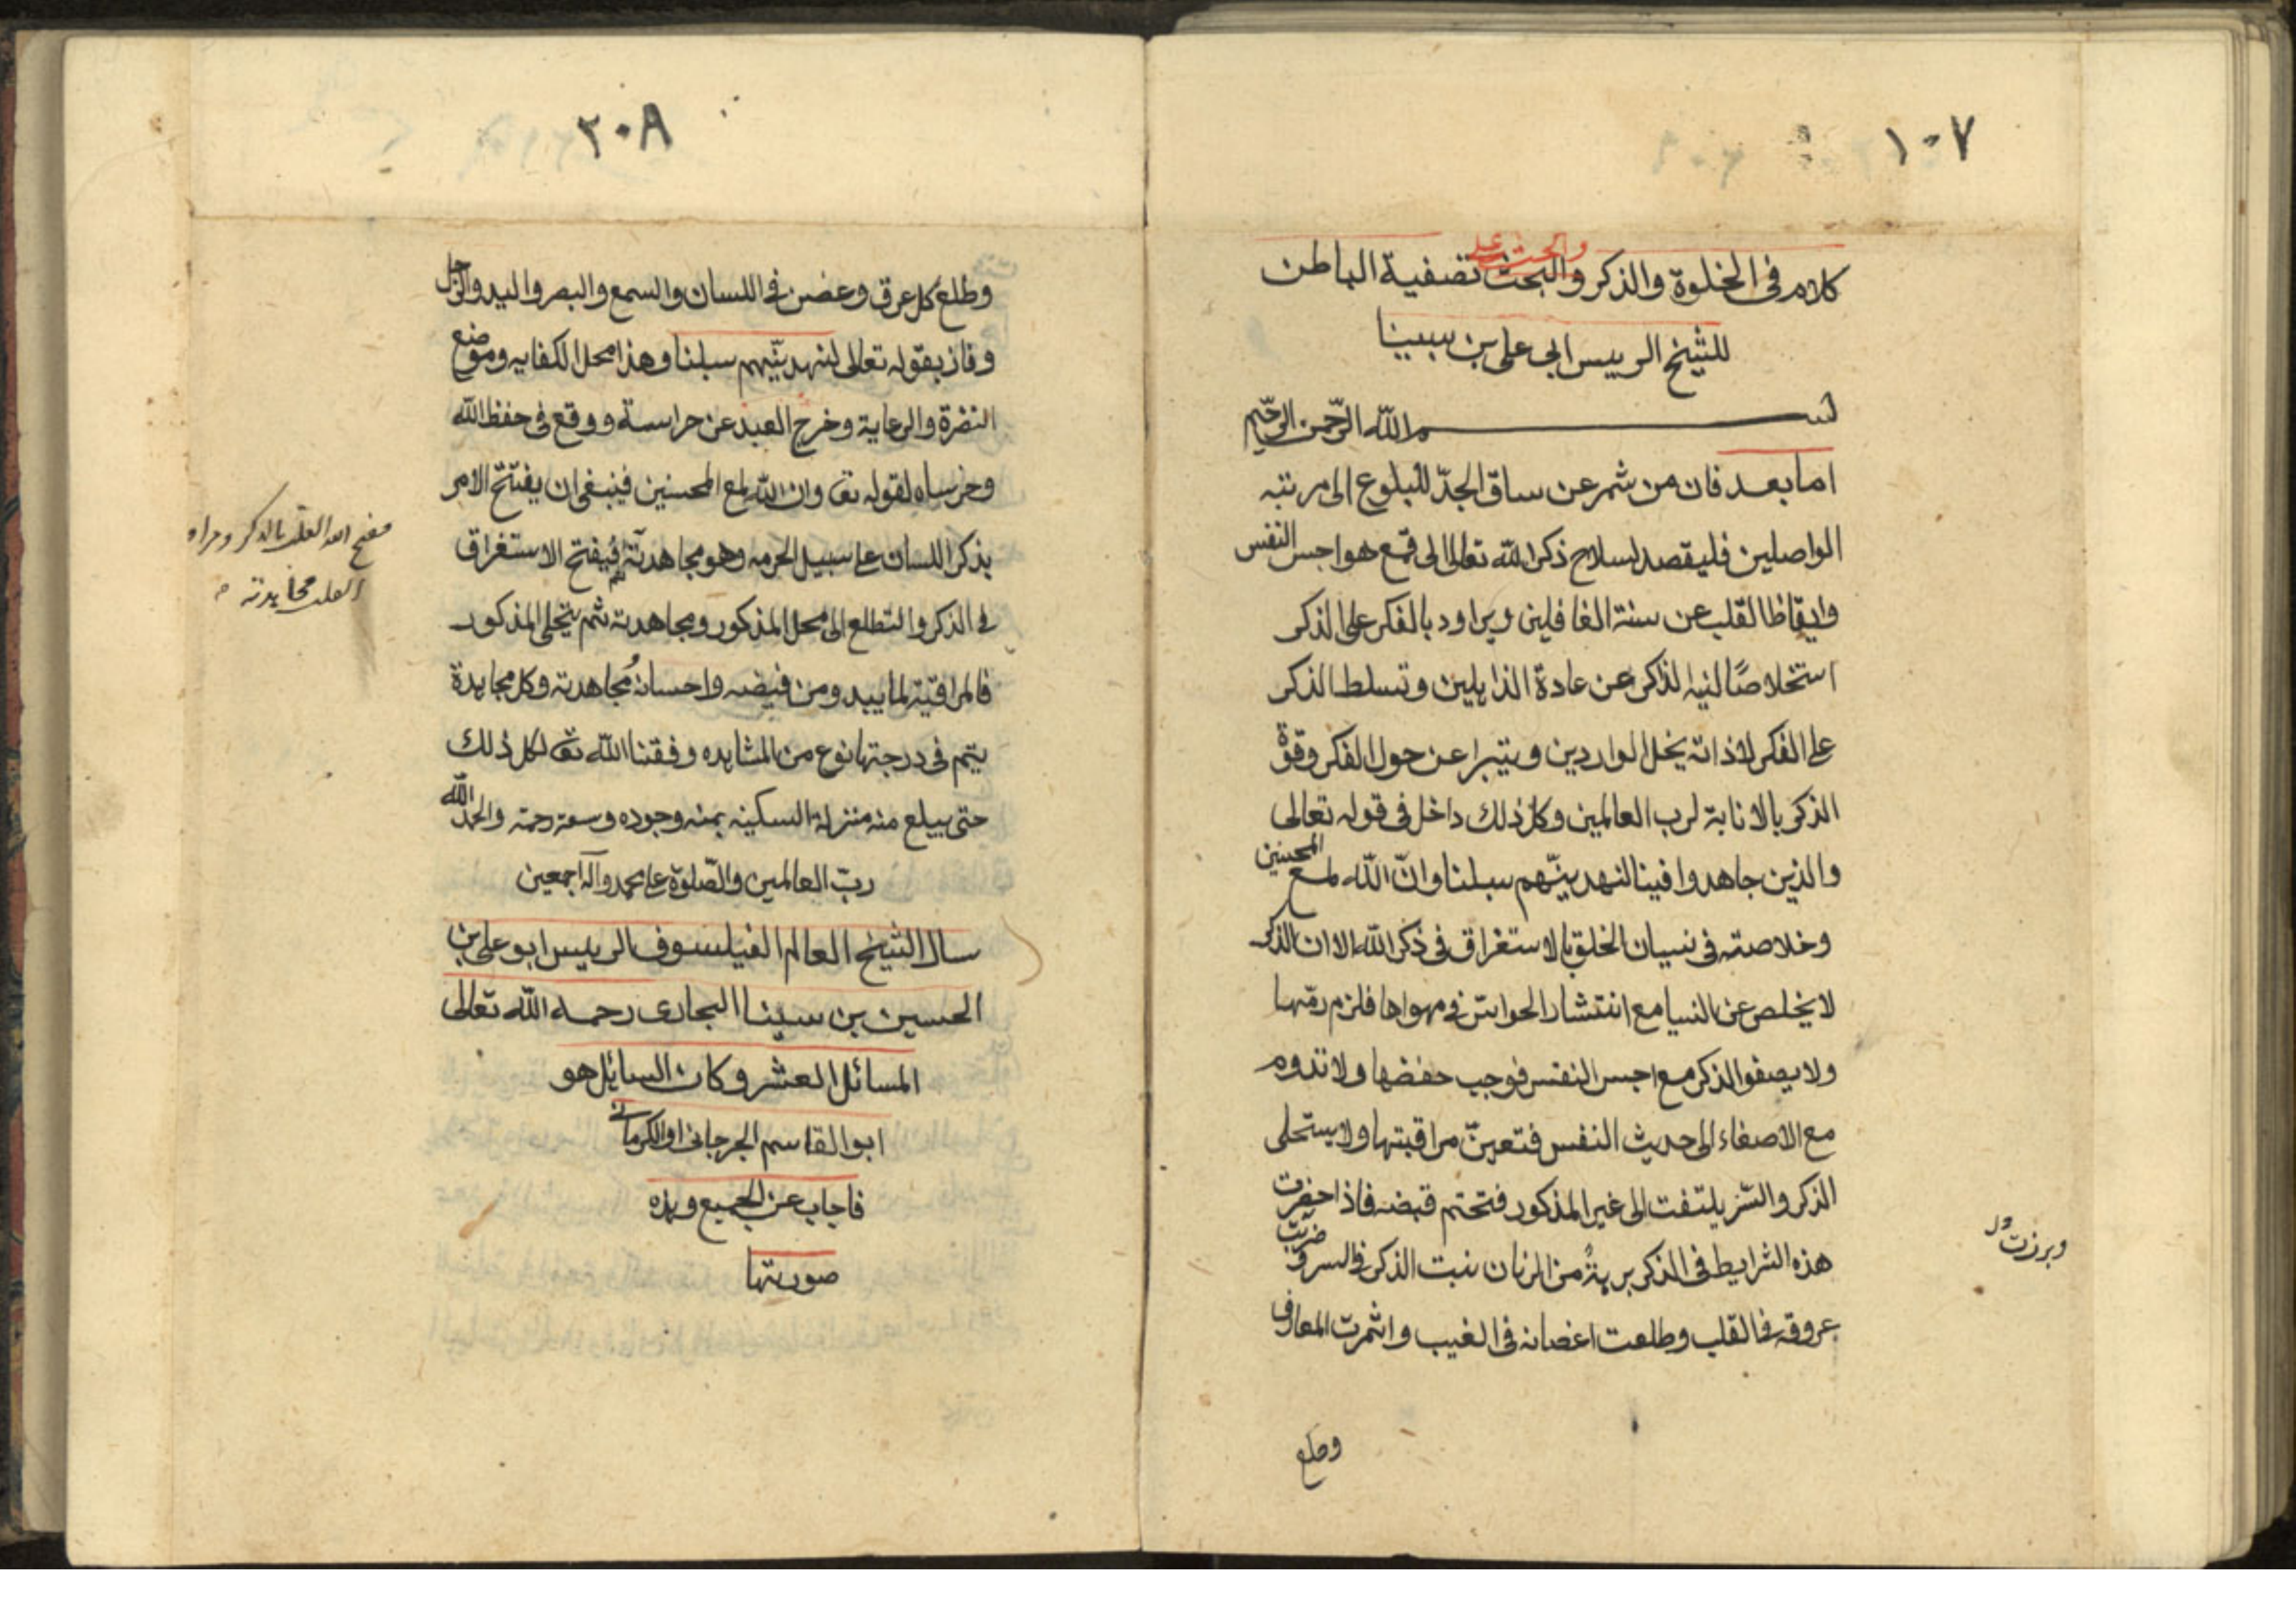 ١٠٧
والحث على
كلام فى الخلوة والذكر والبحث تصفية الباطن
للشيخ الرييس ابى على بن سينا
بسم الله الرّحمن الرّحيم
اما بعد فان من شمر عن ساق الجدّ للبلوغ الى مرتبه
الواصلين فليقصد بسلاح ذكر الله تعالى الى قمع هواجس النفس
وايقاظ القلب عن سنة الغافلين ويراود بالفكر على الذكر
استخلاصًا لنيه الذكر عن عادة الذاهلين وتسلط الذكر
على الفكر لاذاته يخل الواردين ويتبرا عن حول الفكر وقوة
الذكر بالانابة لرب العالمين وكل ذلك داخل فى قوله تعالى
والذين جاهدوا فينا لنهدينّهم سبلنا وانّ الله لمع المحسنين
وخلاصته فى نسيان الخلق بالاستغراق فى ذكر الله الا ان الذكر
لا يخلص عن النسيا مع انتشار الحواسّ فى مهواها فلزم رمّها
ولا يصفو الذكر مع اجس النفس فوجب حفضها ولا تدوم
مع الاصغاء الى حديث النفس فتعينّ مراقبتها ولا يستحلى
الذكر والسّر يلتفت الى غير المذكور فتحتم قبضه فاذا حضرت
هذه الشرايط فى الذكر برهةً من الزمان نبت الذكر فى السر وضربت
عروقه فى القلب وطلعت اغصانه فى الغيب واثمرت المعارف
وبرزت
وطلع
٢٠٨
وطلع كل عرق وغصن فى اللسان والسمع والبصر واليد والرجل
وفاز بقوله تعالى لنهدينّهم سبلنا وهذا محل الكفايه وموضع
النصرة والرعاية وخرج العبد عن حراسة ووقع فى حفظ الله
وحرساه لقوله تعا وان الله لمع المحسنين فينبغى ان يفتتح الامر
بذكر اللسان على سبيل الحرمه وهو مجاهدته ثم يفتح الاستغراق
فى الذكر والتطلع الى محل المذكور ومجاهدته ثم يتجلى المذكور
فالمراقبة لما يبدو من فيضه واحسانه مجاهدته وكل مجاهدة
يتم فى درجتها نوع من المشاهده وفقنا الله تعا لكل ذلك
حتى يبلغ منه منزلة السكينه بمنه وجوده وسعة رحمته والحمد لله
ربّ العالمين والصّلوة على محمد وآله اجمعين
سال الشيخ العالم الفيلسوف الرييس ابو على بن
الحسين بن سينا البخارى رحمه الله تعالى
المسائل العشر وكان السايل هو
ابوالقاسم الجرجانى او الكرمانى
فاجاب عن الجميع وهذه
صورتها
القلب بالذكر
القلب مجاهدته